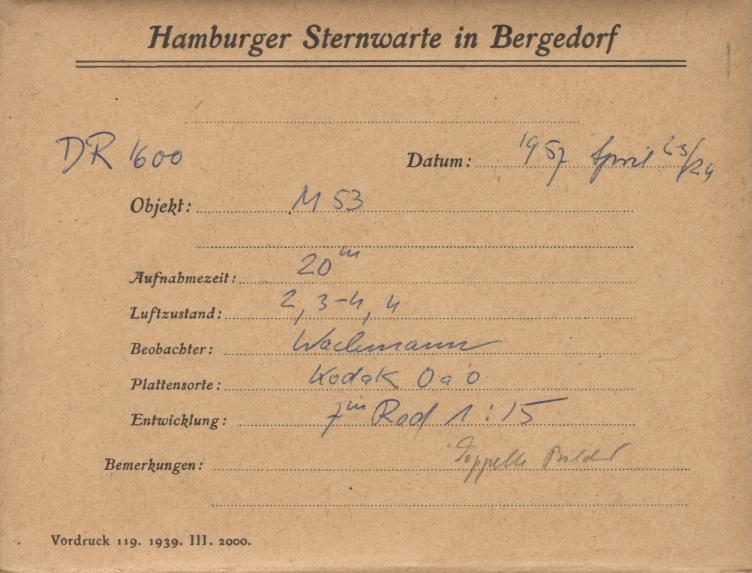 Hamburger Sternwarte in Bergedorf
DR 1600
Datum: 1957 April 23/24
Objekt: M 53
Aufnahmezeit: 20m
Luftzustand: 2, 3-4, 4
Beobachter: Wachmann
Plattensorte: Kodak OaO
Entwicklung: 7m Rod 1:15
Bemerkungen: Doppelte Bilder
Vordruck 119. 1939. III. 2000.